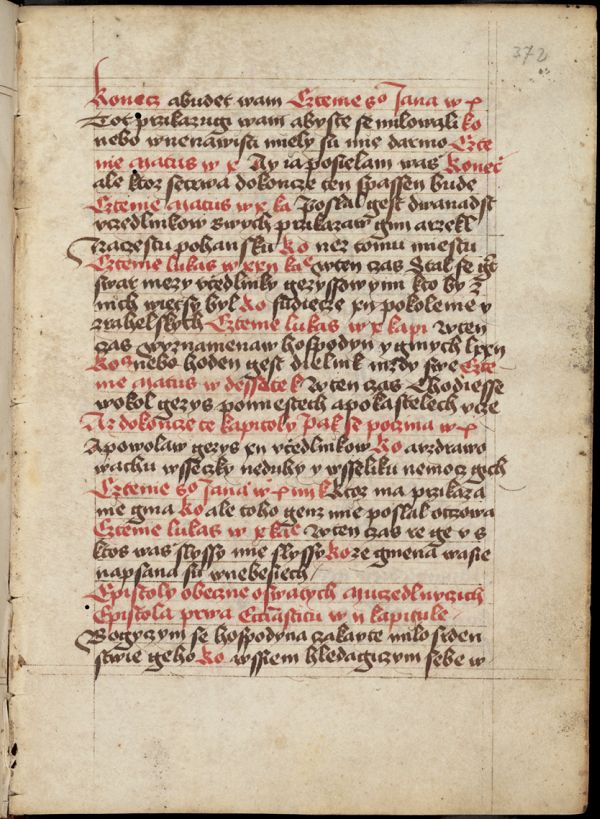 372
Konecz abudet wam Cztenie so Jana w x
Tot przikazugi wam abyste se milowali ko
nebo wnenawisti miely su mie darmo Czte
nie Matus w x Ny ia posielam was Konec
ale ktoz setrwa dokoncze ten spassen bude
Cztenie Matus w x ka Poslal gest dwanadst
vczedlnikow swych przikazaw gim arzekl
Nacestu pohansku Ko nez tomu miestu
Cztenie lukas w xxii kac wten czas Stal se gest
swar mezy vczedlniky gezyssowymi kto by z
nich wietssy byl Ko sudiecze xii pokolenie y
zrahelskych Cztenie lukas w x kapi wten
czas wyznamenaw hospodyn y ginych lxxii
Ko nebo hoden gest dielnik mzdy swe Czte
nie Matus w dessate k Wten czas Chodiesse
wokol gezys pomiestech apokastelech vcze
Az dokoncze te kapitoly Pak se poczina w x
Apowolaw gezys xii vczedlnikow Ko avzdrawo
wachu wsseczky neduhy y wsseliku nemocz gich
Cztenie so Jana w x iiii k Ktoz ma przikaza
nie gma Ko ale toho genz mie poslal otczowa
Cztenie lukas w x kac Wten czas rze ge v s
ktos was slyssy mie slyssy Ko ze gmena wasse
napsana su wnebesiech
Epistoly obeczne oswatych Muczedlnyczich
Epistola prwa Eccliasticu w ii kapitule
Bogyczym se hospodyna zakryte milosrden
stwie geho Ko wssiem hledagiczym sebe w